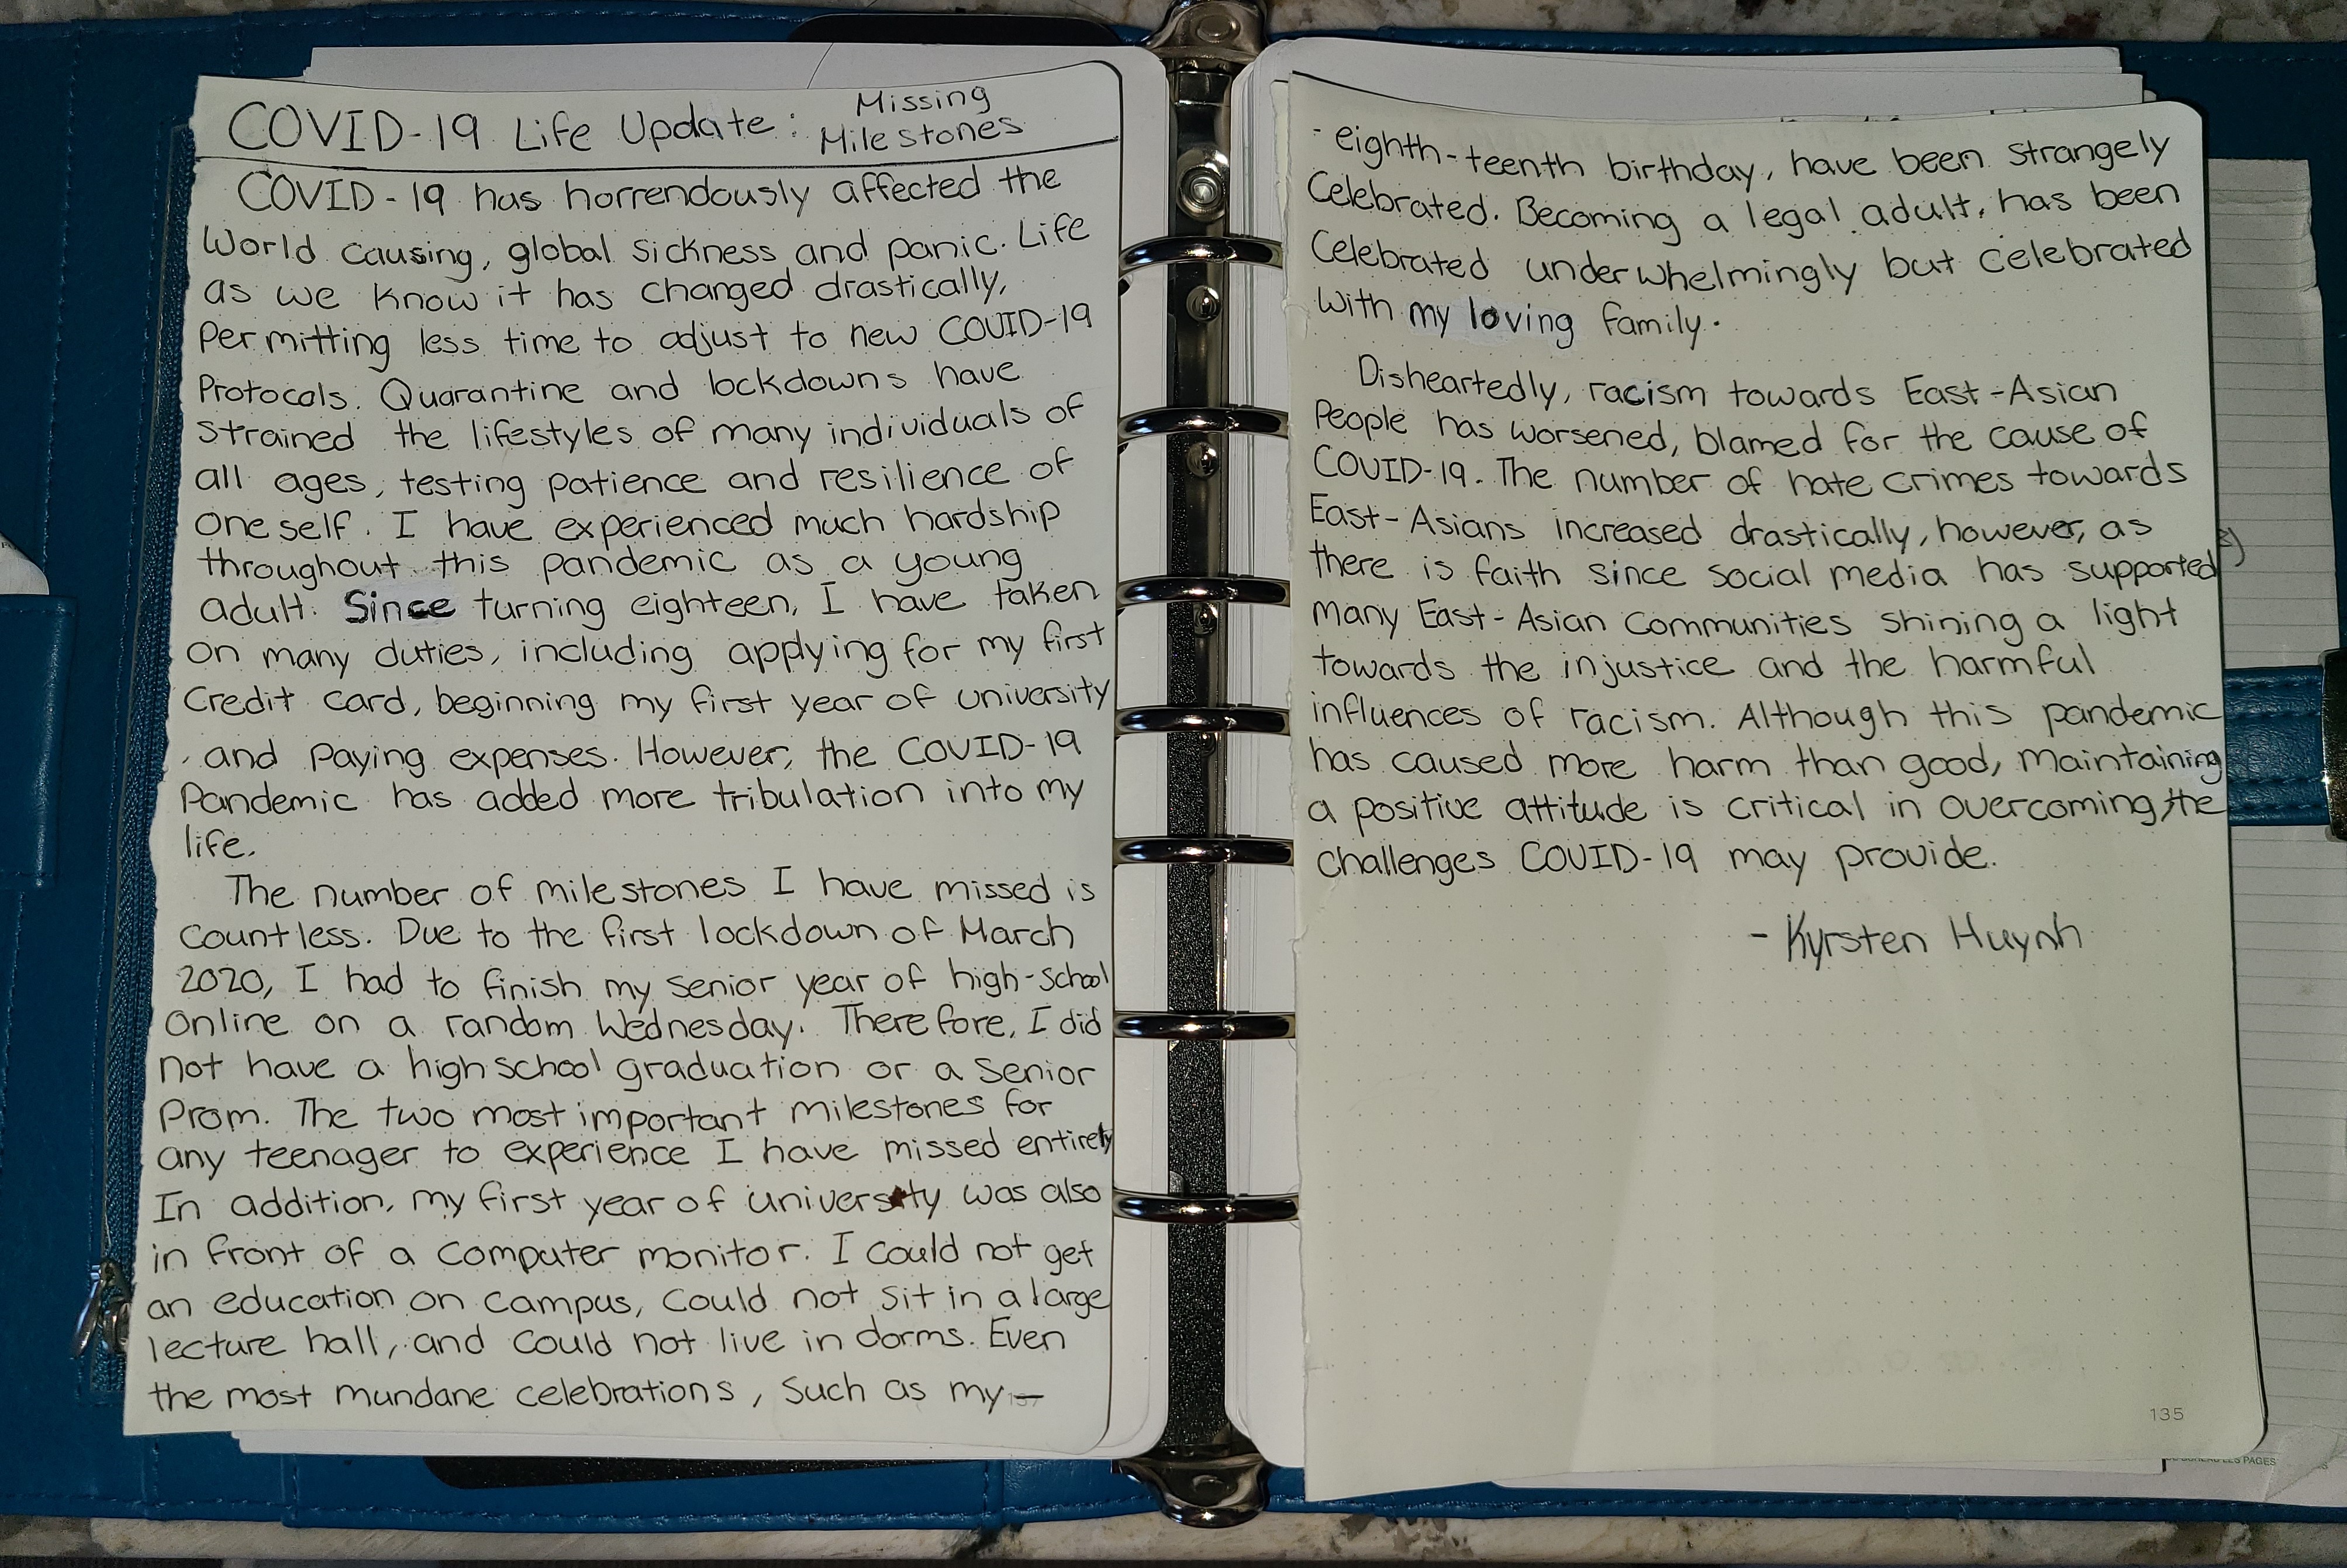 COVID-19 Life Update: Missing Milestones
COVID-19 has horrendously affected the
World causing, global sickness and panic. Life
as we know it has changed drastically,
Permitting less time to adjust to new COVID-19
Protocols. Quarantine and lockdowns have
strained the lifestyles of many individuals of
all ages, testing patience and resilience of
oneself. I have experienced much hardship
throughout this pandemic as a young
adult. Since turning eighteen, I have taken
on many duties, including applying for my first
Credit card, beginning my first year of university
, and paying expenses. However, the COVID-19
Pandemic has added more tribulation into my
life.
The number of milestones I have missed is
countless. Due to the first lockdown of March
2020, I had to finish my senior year of high-school
Online on a random Wednesday. Therefore, I did
not have a high school graduation or a Senior
Prom. The two most important milestones for
any teenager to experience I have missed entirely
In addition, my first year of university was also
in front of a computer monitor. I could not get
an education on campus, could not sit in a large
lecture hall, and could not live in dorms. Even
the most mundane celebrations, such as my -
- eighth-teenth birthday, have been strangely
Celebrated. Becoming a legal adult, has been
Celebrated underwhelmingly but celebrated
with my loving family.
Disheartedly, racism towards East-Asian
People has worsened, blamed for the cause of
COVID-19. The number of hate crimes towards
East-Asians increased drastically, however, as
there is faith since social media has supported
many East-Asian Communities shining a light
towards the injustice and the harmful
influences of racism. Although this pandemic
has caused more harm than good, maintaining
a positive attitude is critical in overcoming, the
challenges COVID-19 may provide.
- Kyrsten Huynh
135